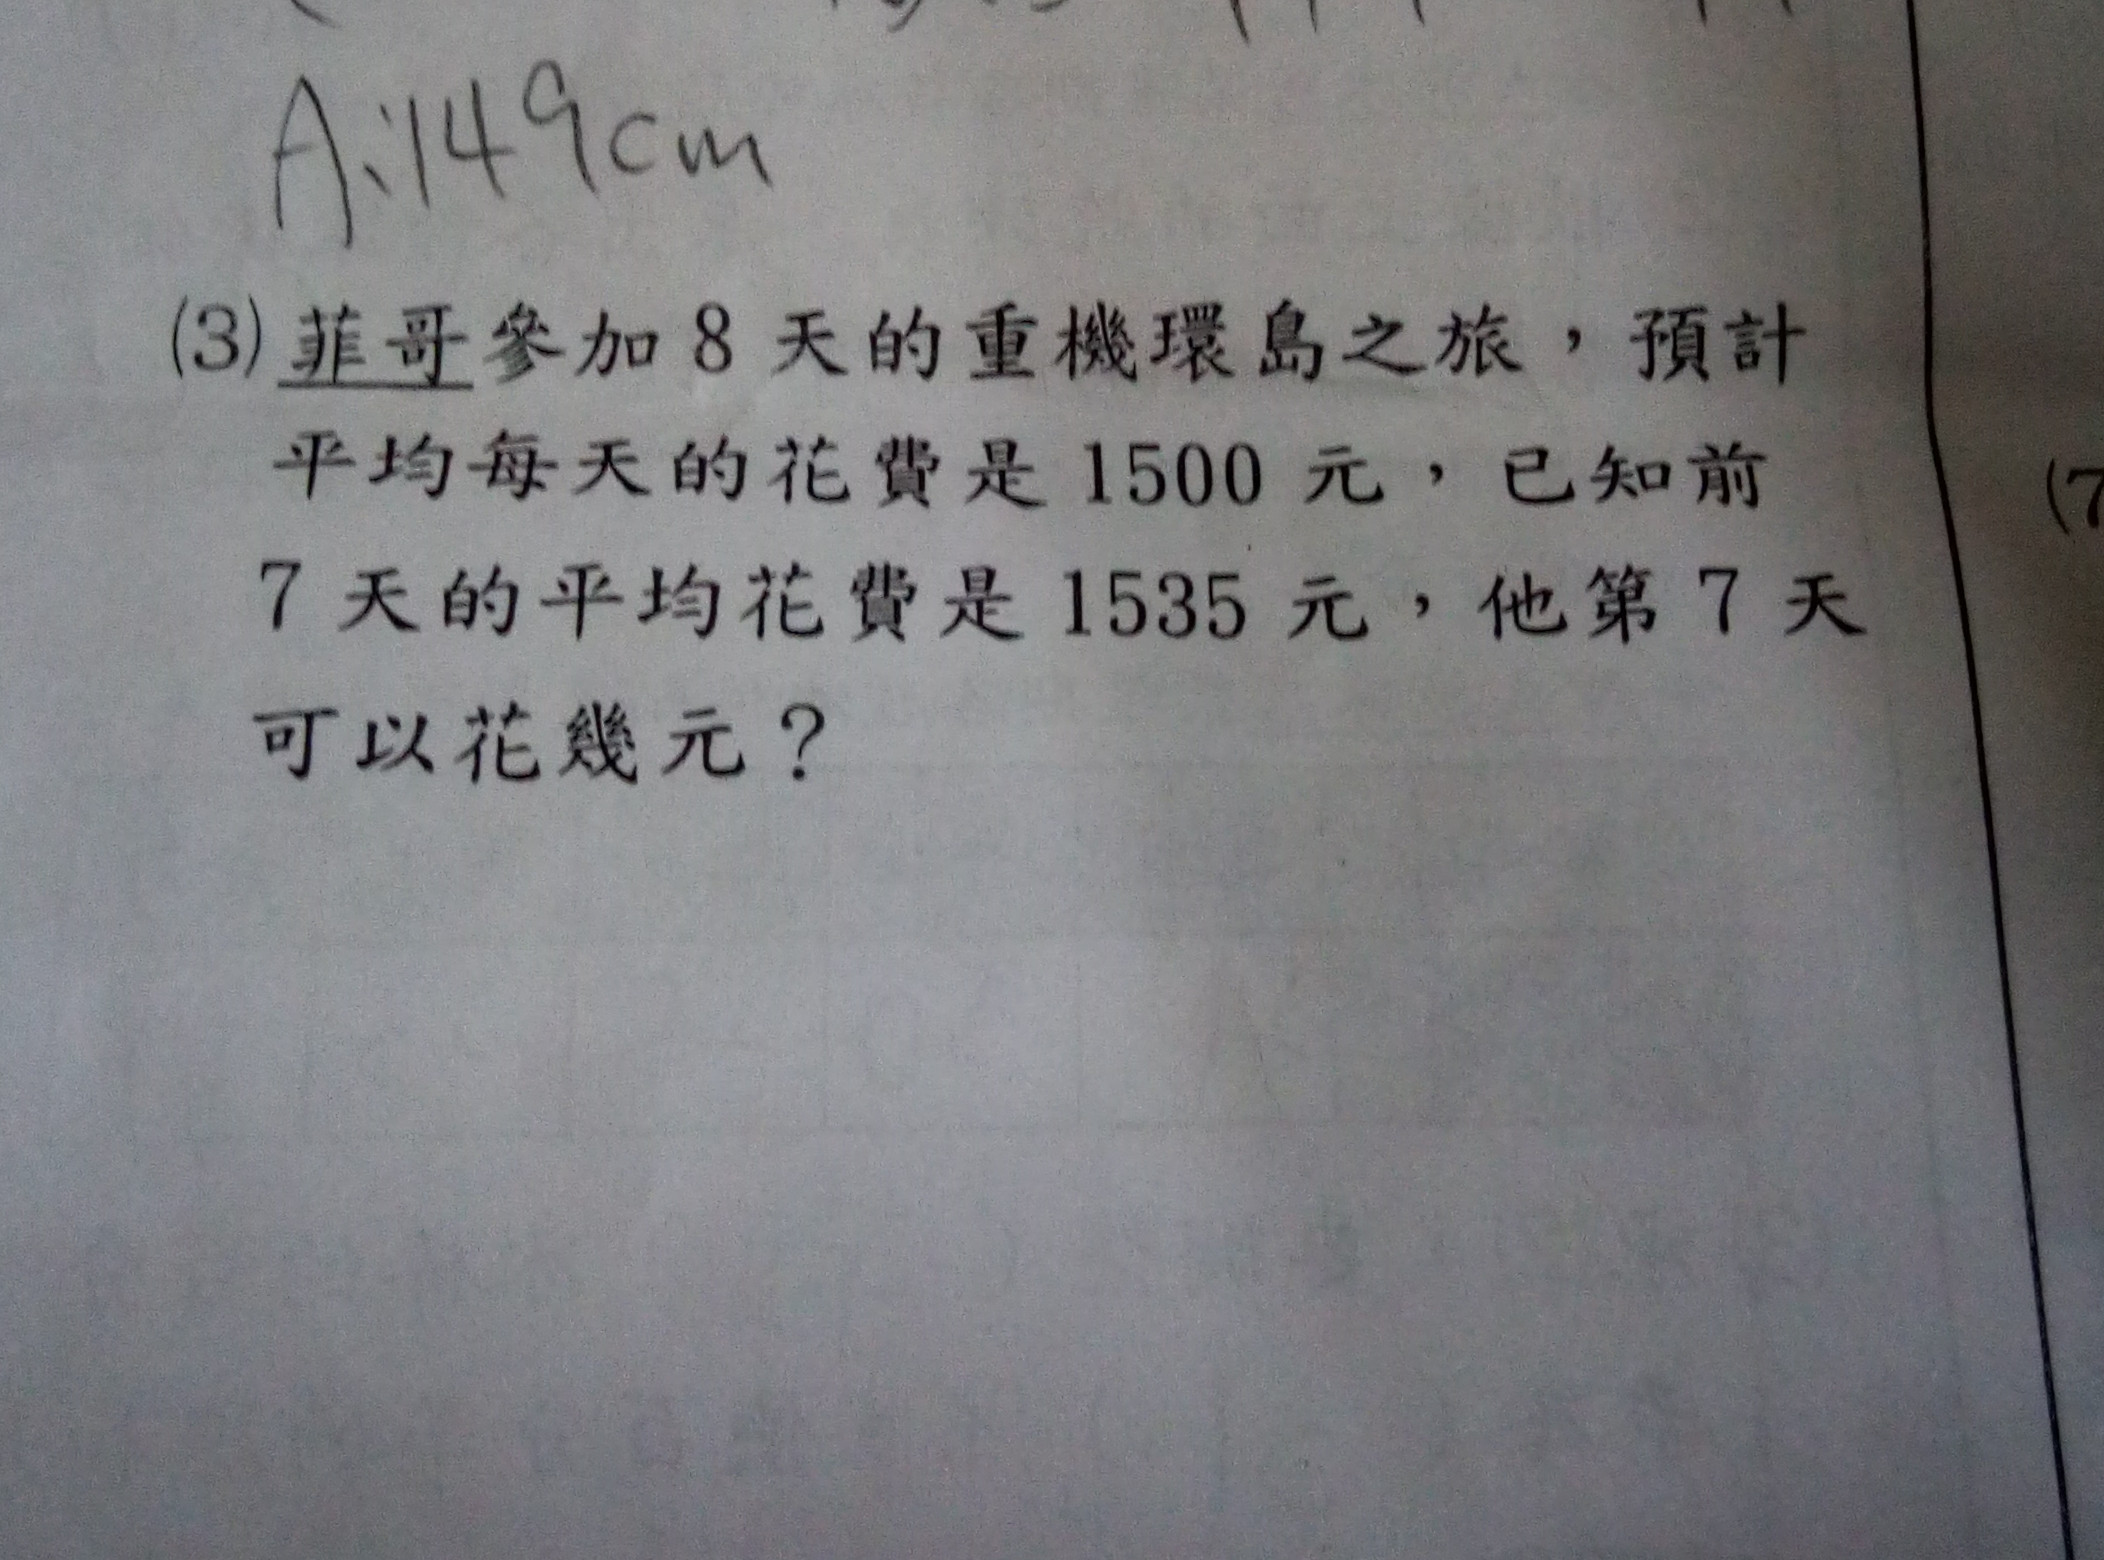 A:149cm
(3)菲哥參加 8 天的重機環島之旅，預計
平均每天的花費是 1500 元，已知前
7 天的平均花費是 1535 元，他第 7 天
可以花幾元？
(7